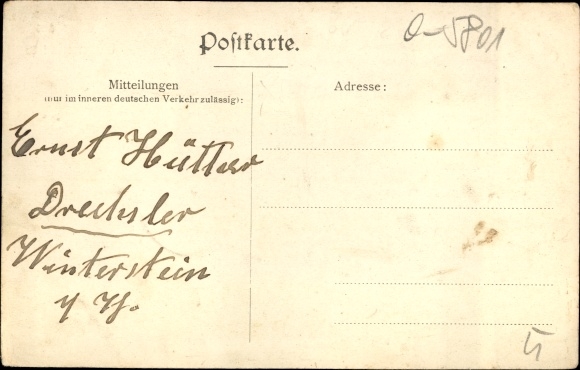 O-5801
Postkarte.
Mitteilungen
(nur im inneren deutschen Verkehr zulässig):
Adresse:
Ernst Hütter
Drechsler
Winterstein